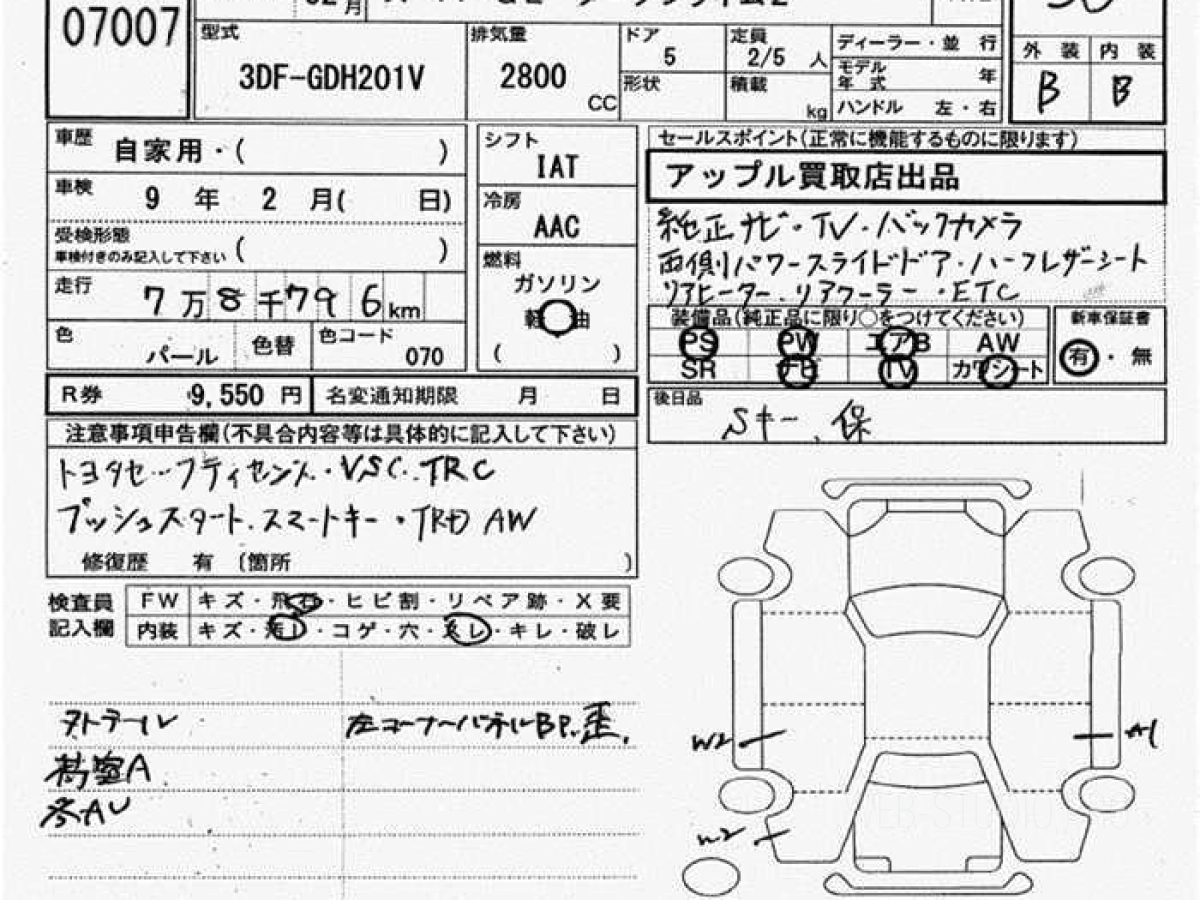 07007
型式
3DF-GDH201V
排気量
2800
CC
ドア
5
定員
2/5 人
形状
積載
kg
ディーラー・並 行
モデル
年 式 年
ハンドル 左・右
外 装 内 装
B B
車歴 自家用・( )
車検 9 年 2 月( 日)
受検形態
車検付きのみ記入して下さい ( )
走行 7万8千796km
色 パール 色替 色コード 070
シフト
IAT
冷房
AAC
燃料
ガソリン
軽油
( )
セールスポイント(正常に機能するものに限ります)
アップル買取店出品
純正ナビ・TV・バックカメラ
両側パワースライドドア・ハーフレザーシート
リアヒーター.リアクーラー・ETC
装備品(純正品に限り○をつけてください)
PS PW エアB AW
SR ナビ TV カワシート
新車保証書
有・無
R券 9,550 円 名変通知期限 月 日
後日品
Sキー、保
注意事項申告欄(不具合内容等は具体的に記入して下さい)
トヨタセーフティセンス・VSC.TRC
プッシュスタート.スマートキー・TRD AW
修復歴 有 〔箇所 〕
検査員
記入欄
FW キズ・飛石・ヒビ割・リペア跡・X要
内装 キズ・汚レ・コゲ・穴・スレ・キレ・破レ
左コーナーパネルBP.歪.
W2
A1
W2